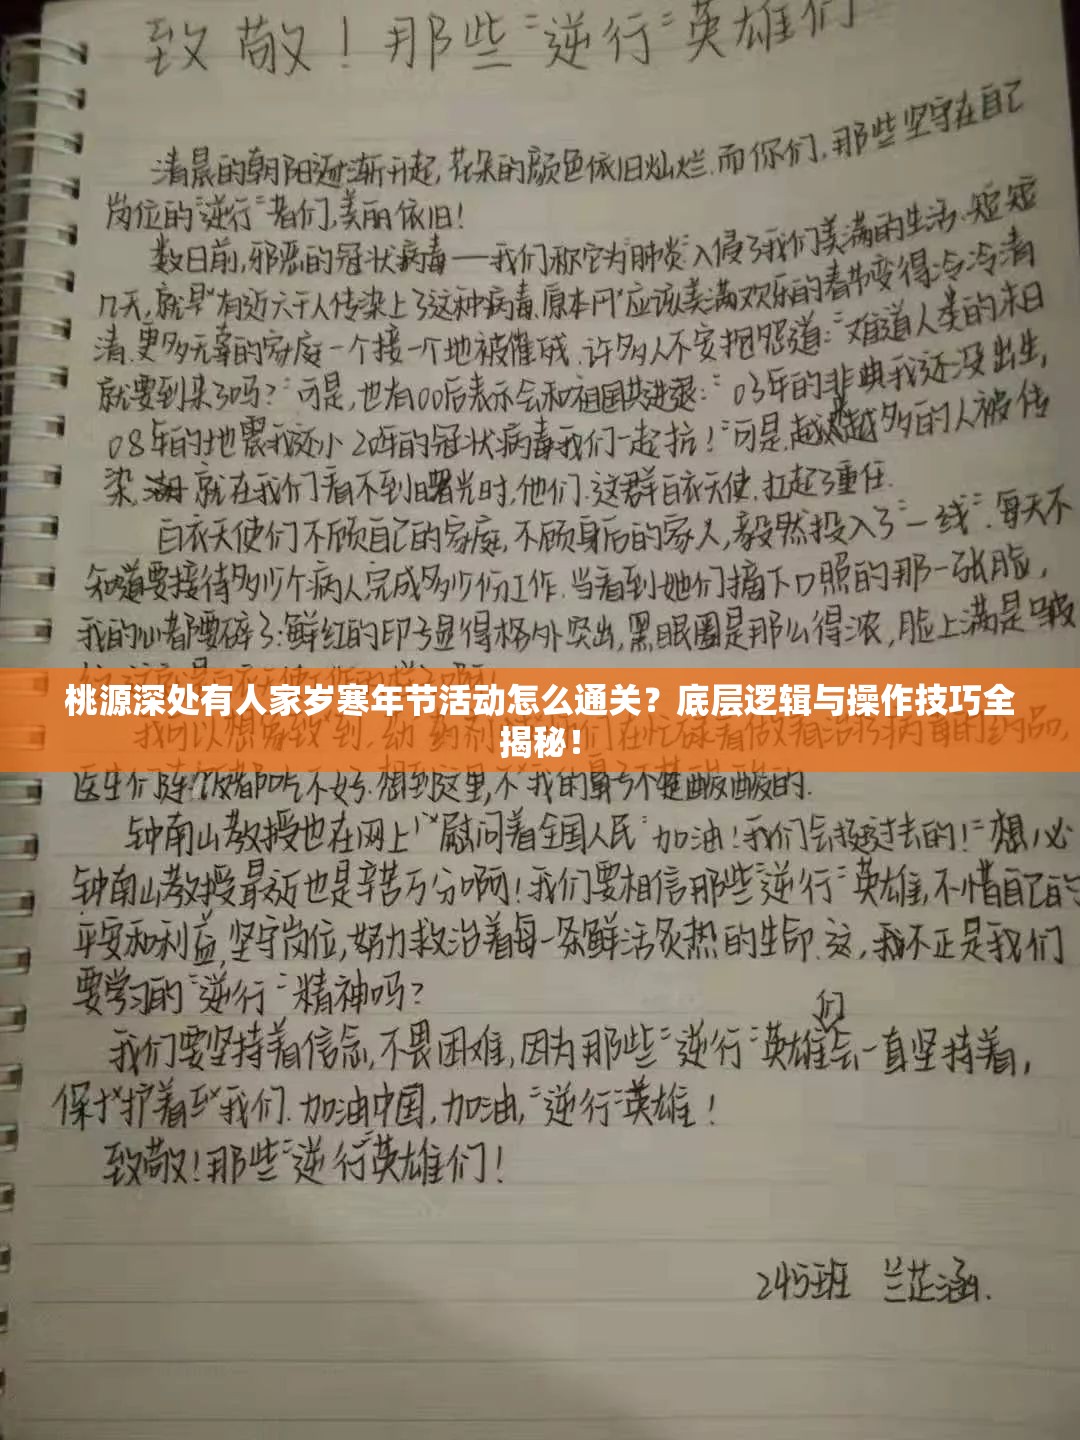 致敬！那些“逆行”英雄们
清晨的朝阳逐渐升起，花朵的颜色依旧灿烂.而你们，那些坚守在自己
岗位的“逆行”者们，美丽依旧！
数日前，邪恶的冠状病毒——我们称它为“肺炎”入侵了我们美满的生活.短短
几天，就有近六千人传染上了这种病毒.原本应该美满欢乐的春节变得冷冷清
清.更多无辜的家庭一个接一个地被摧残.许多人不安抱怨道：“难道人类的末日
就要到来了吗？”可是，也有00后表示会和祖国共进退：“03年的非典我还没出生，
08年的地震我还小20年的冠状病毒我们一起抗！”可是，越来越多的人被传
染，就在我们看不到曙光时，他们.这群白衣天使.扛起了重任.
白衣天使们不顾自己的家庭，不顾身后的家人，毅然投入了“一线”.每天不
知道要接待多少个病人完成多少份工作.当看到她们摘下口照的那一张脸，
我的心都要碎了：鲜红的印子显得格外突出，黑眼圈是那么得浓，脸上满是疲
桃源深处有人家岁寒年节活动怎么通关？底层逻辑与操作技巧全
揭秘！
医生们连饭都吃不好.想到这里，我的鼻子不禁酸酸的.
钟南山教授也在网上慰问着全国人民“加油！我们会挺过去的！”想必
钟南山教授最近也是辛苦万分啊！我们要相信那些“逆行”英雄，不惜自己的
平安和利益，坚守岗位，努力救治着每一条鲜活炙热的生命.这，我不正是我们
要学习的“逆行”精神吗？
我们要坚持着信念，不畏困难，因为那些“逆行”英雄们会一直坚持着，
保护着我们.加油中国，加油，“逆行”英雄！
致敬！那些“逆行”英雄们！
245班 兰芷涵.